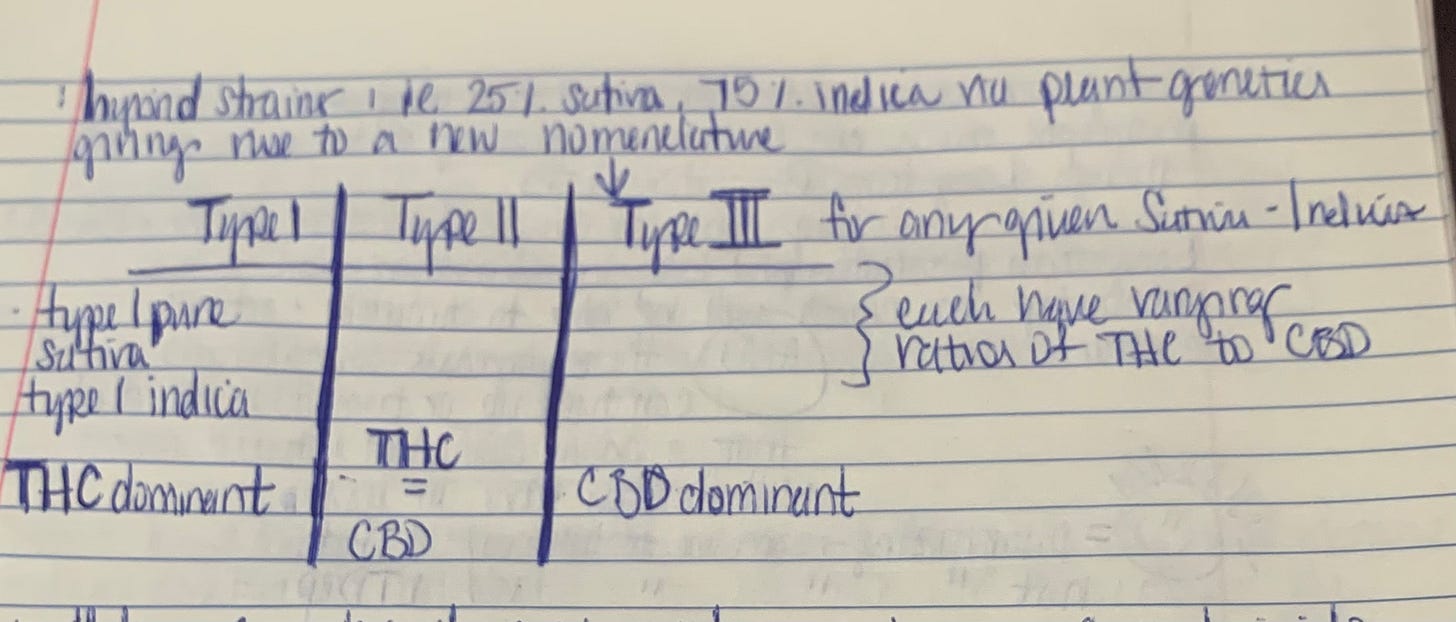 : hybrid strains, ie. 25% sativa, 75% indica via plant genetics
giving rise to a new nomenclature
↓
Type I | Type II | Type III for any given Sativa - Indica
· type I pure
sativa
type I indica
} each have varying
ratios of THC to CBD
THC
THC dominant · = · CBD dominant
CBD